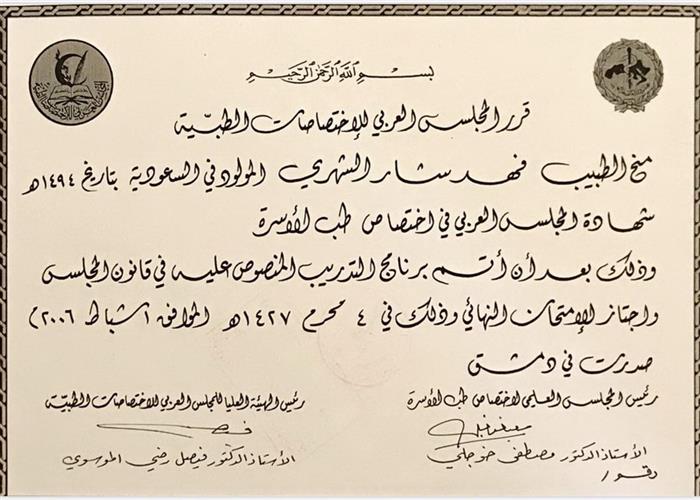 بسم الله الرحمن الرحيم
قرر المجلس العربي للإختصاصات الطبّية
منح الطبيب فهد سشار الشهري المولود في السعودية بتاريخ ١٤٩٤هـ
شهادة المجلس العربي في اختصاص طب الأسرة
وذلك بعد أن أتم برنامج التدريب المنصوص عليه في قانون المجلس
واجتاز الإمتحان النهائي وذلك في ٤ محرم ١٤٢٧هـ الموافق ١ شباط ٢٠٠٦م
صدرت في دمشق
رئيس المجلس العلمي لاختصاص طب الأسرة
رئيس الهيئة العليا للمجلس العربي للاختصاصات الطبيّة
الأستاذ الدكتور مصطفى خوجلي
الأستاذ الدكتور فيصل رضي الموسوي